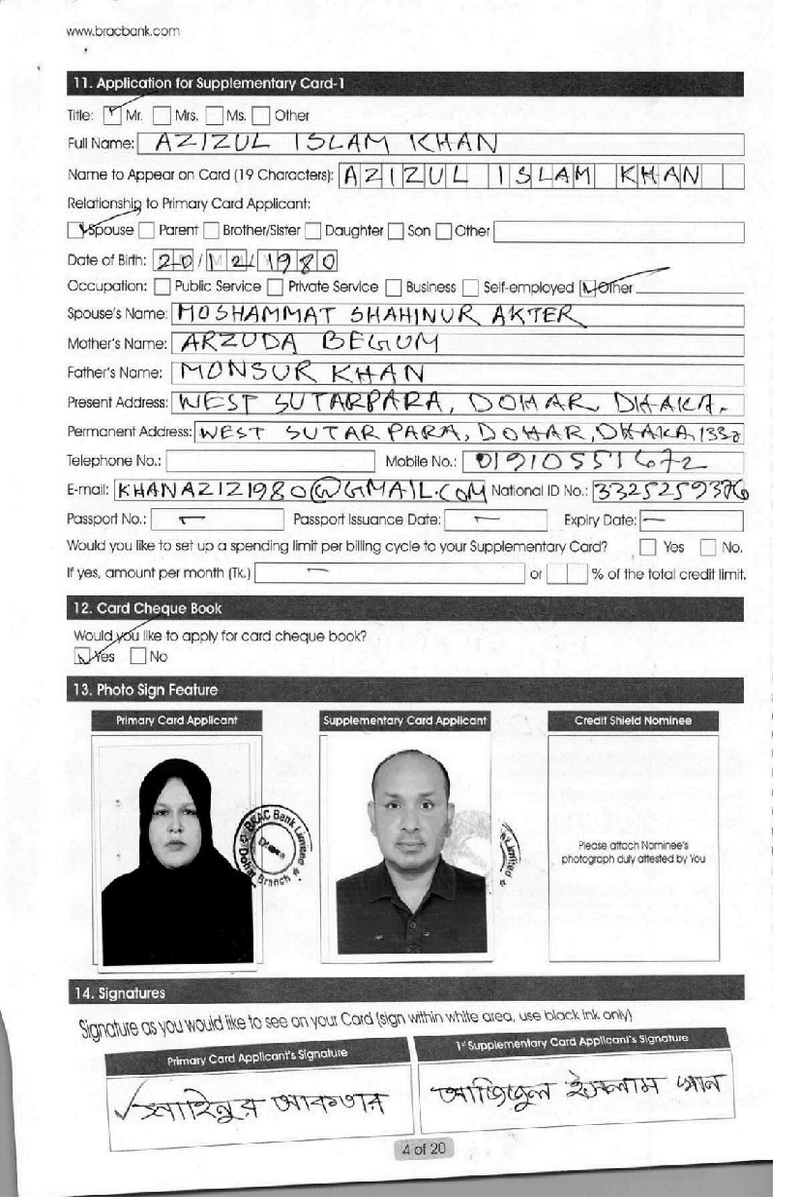 www.bracbank.com
11. Application for Supplementary Card-1
Title: Mr. Mrs. Ms. Other
Full Name: AZIZUL ISLAM KHAN
Name to Appear on Card (19 Characters): AZIZUL ISLAM KHAN
Relationship to Primary Card Applicant:
Spouse Parent Brother/Sister Daughter Son Other
Date of Birth: 20/12/1980
Occupation: Public Service Private Service Business Self-employed Other
Spouse's Name: MOSHAMMAT SHAHINUR AKTER
Mother's Name: ARZUDA BEGUM
Father's Name: MONSUR KHAN
Present Address: WEST SUTARPARA, DOHAR, DHAKA.
Permanent Address: WEST SUTARPARA, DOHAR, DHAKA, 1330
Telephone No.: Mobile No.: 01910551672
E-mail: KHANAZIZ1980@GMAIL.COM National ID No.: 3325259376
Passport No.: — Passport Issuance Date: — Expiry Date: —
Would you like to set up a spending limit per billing cycle to your Supplementary Card? Yes No.
If yes, amount per month (Tk.) — or % of the total credit limit.
12. Card Cheque Book
Would you like to apply for card cheque book?
Yes No
13. Photo Sign Feature
Primary Card Applicant Supplementary Card Applicant Credit Shield Nominee
BRAC Bank Limited
Dohar Branch
Dhaka
Limited
Please attach Nominee's
photograph duly attested by You
14. Signatures
Signature as you would like to see on your Card (sign within white area, use black ink only)
Primary Card Applicant's Signature 1st Supplementary Card Applicant's Signature
সাহিনুর আকতার আজিজুল ইসলাম খান
4 of 20